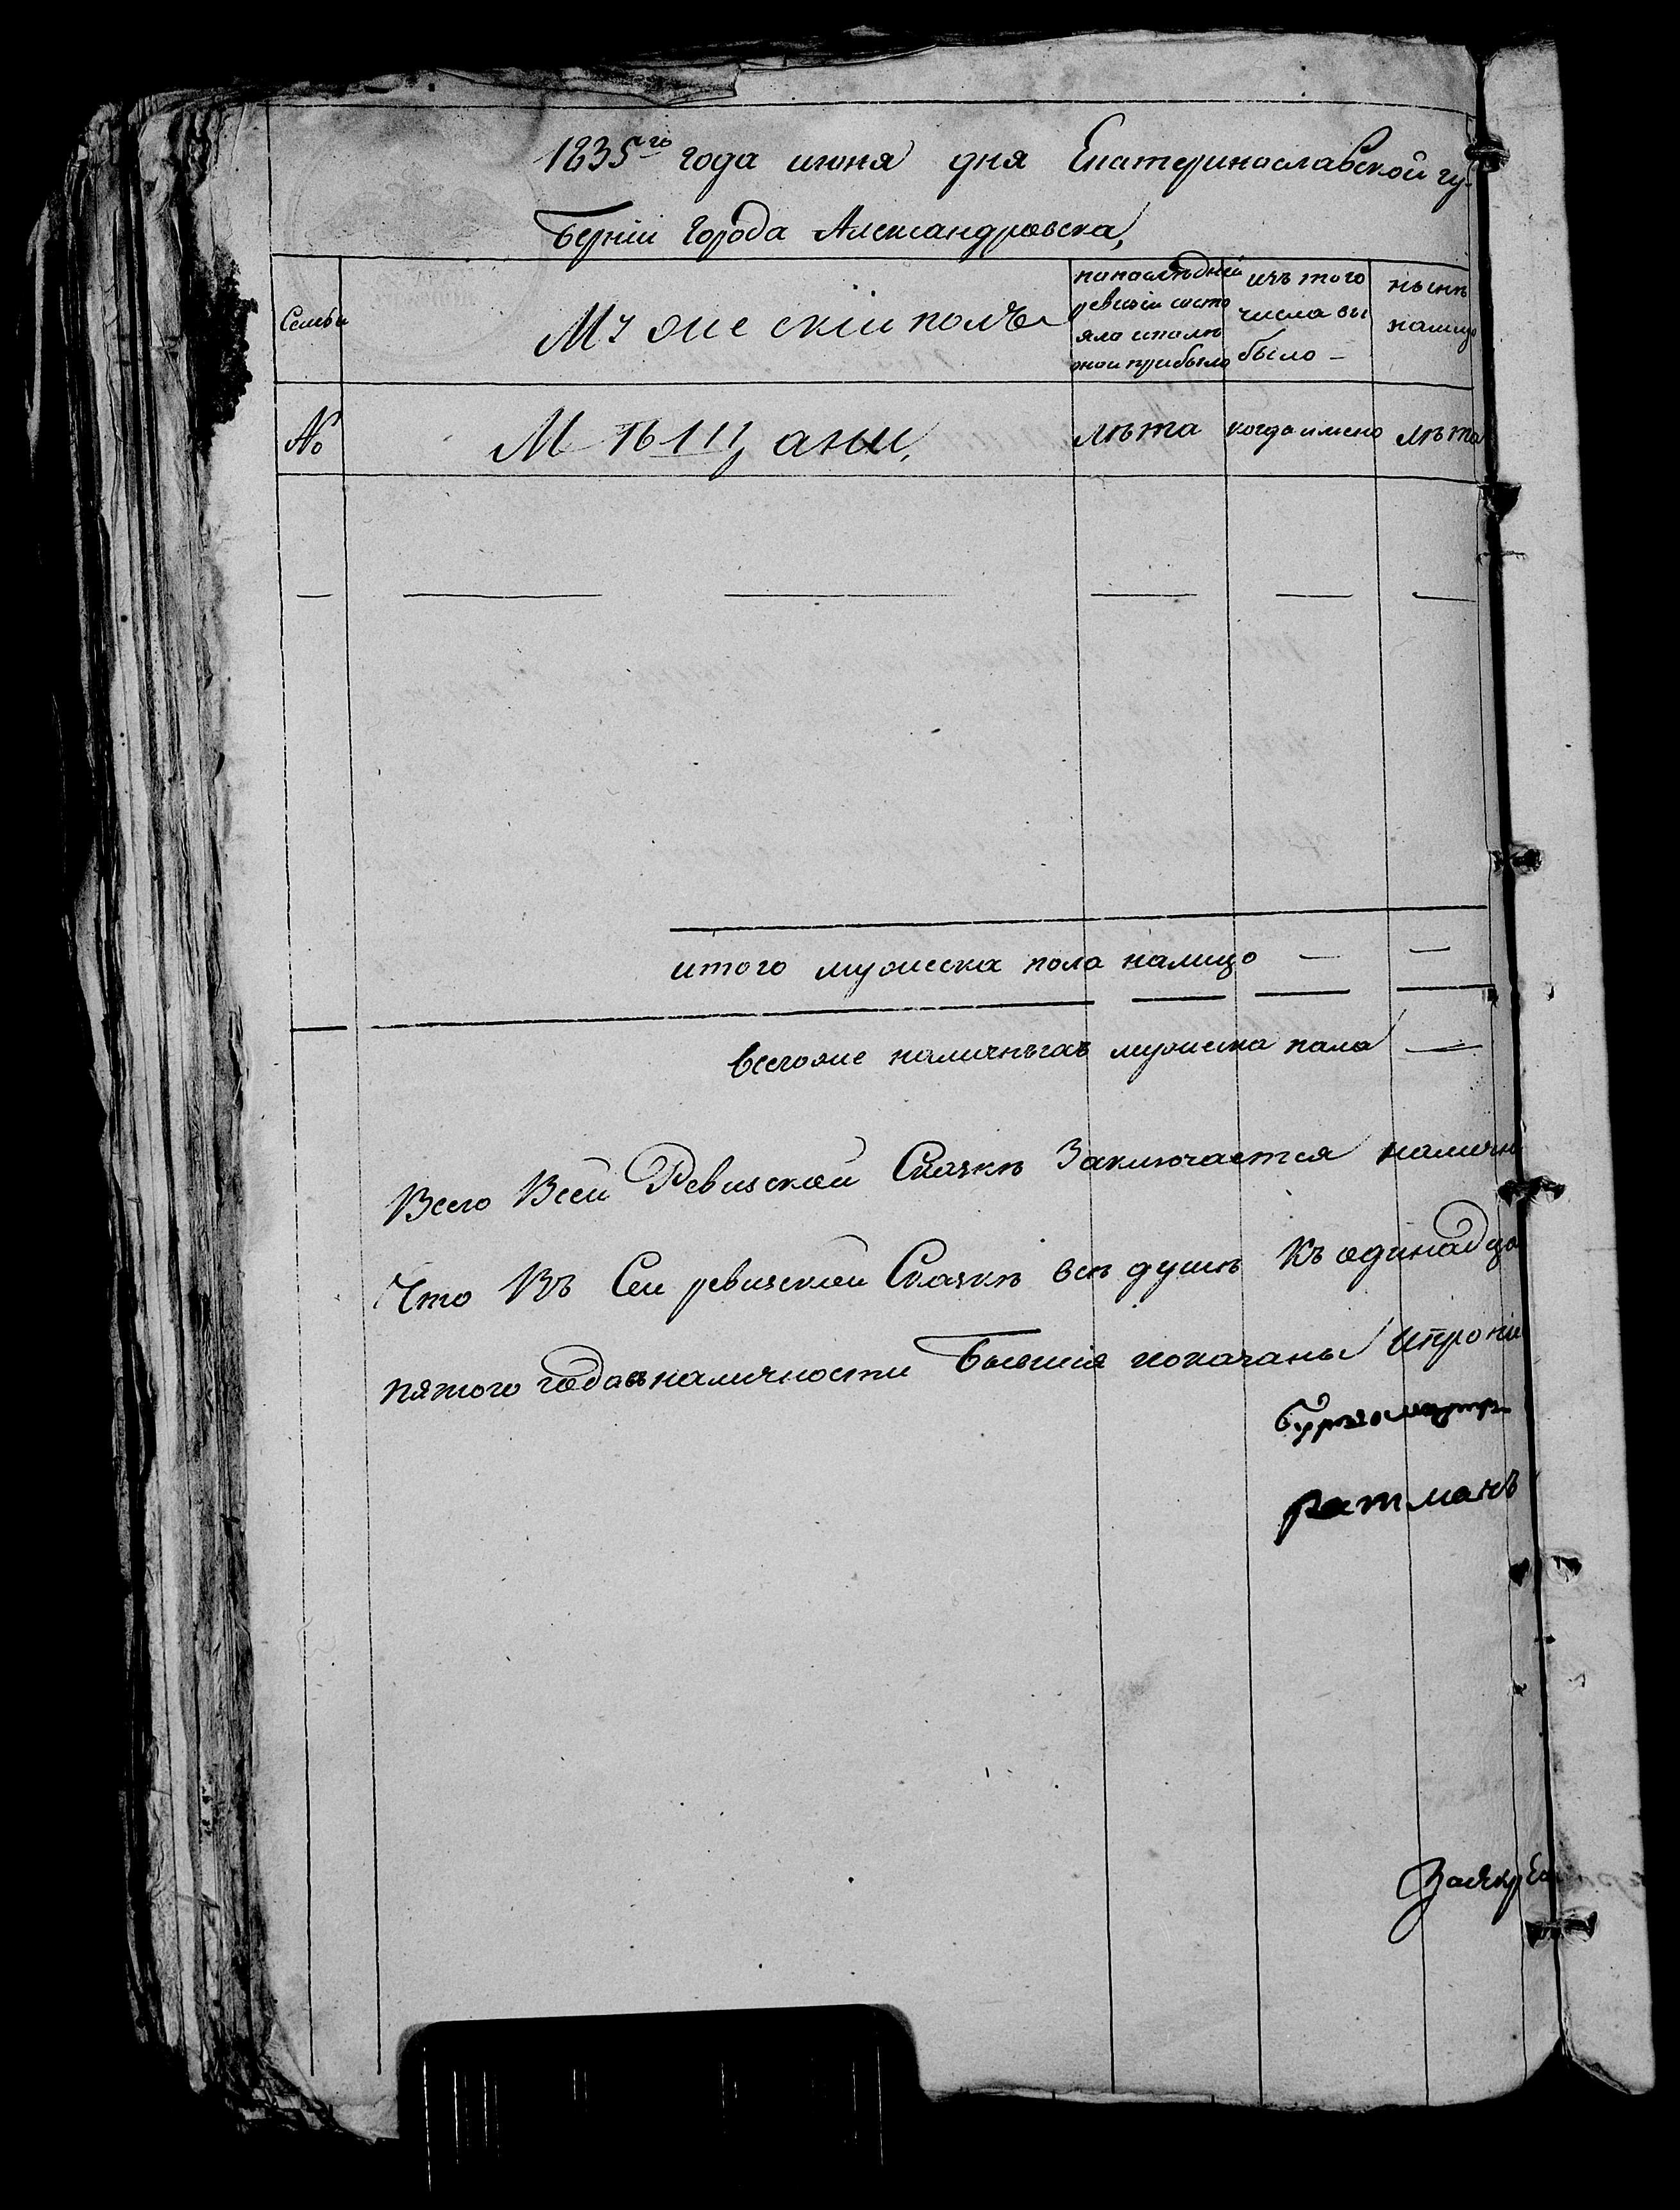 1835го года июня дня Екатеринославской гу-
берніи города Александровска,
Семьи
Мужескій полъ
по последней
ревизіи состо
яло и после
оной прибыло
изъ того
числа вы
было
ныне
налицо
№
Мѣщане,
лѣта
когда имено
лѣта
итого мужеска пола налицо
всегоже наличныхъ мужеска пола
Всего Всей Ревиской Сказкѣ Заключается налично
Что Въ Сей ревиской Сказкѣ всѣ душѣ Къ одинадца
пятого года въ наличности Бывшія показаны ипрони
Бургомистръ
ратманъ